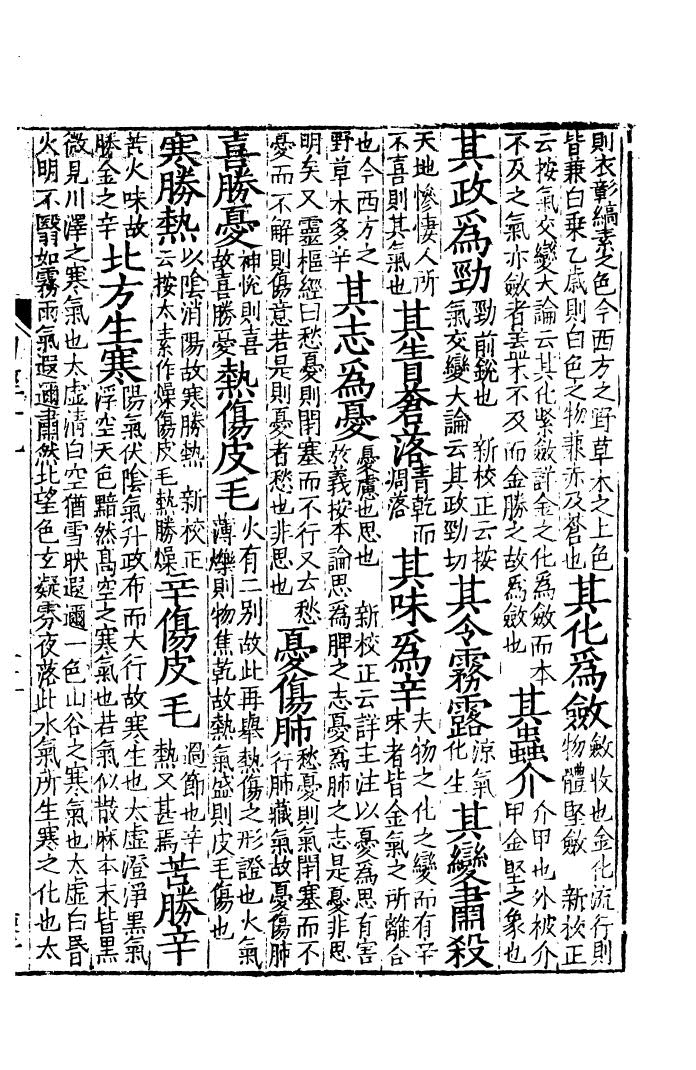 則衣彰縞素之色今西方之野草木之上色
皆兼白乘乙歲則白色之物兼亦及蒼也
其化爲斂
斂收也金化流行則
物體堅斂　新校正
云按氣交變大論云其化緊斂詳金之化爲斂而本
不及之氣亦斂者蓋木不及而金勝之故爲斂也
其蟲介
介甲也外被介
甲金堅之象也
其政爲勁
勁前銳也　新校正云按
氣交變大論云其政勁切
其令霧露
涼氣
化生
其變肅殺
天地慘悽人所
不喜則其氣也
其眚蒼落
青乾而
凋落
其味爲辛
夫物之化之變而有辛
味者皆金氣之所離合
也今西方之
野草木多辛
其志爲憂
憂慮也思也　新校正云詳王注以憂爲思有害
於義按本論思爲脾之志憂爲肺之志是憂非思
明矣又靈樞經曰愁憂則閉塞而不行又云愁
憂而不解則傷意若是則憂者愁也非思也
憂傷肺
愁憂則氣閉塞而不
行肺藏氣故憂傷肺
喜勝憂
神悅則喜
故喜勝憂
熱傷皮毛
火有二別故此再舉熱傷之形證也火氣
薄爍則物焦乾故熱氣盛則皮毛傷也
寒勝熱
以陰消陽故寒勝熱　新校正
云按太素作燥傷皮毛熱勝燥
辛傷皮毛
過節也辛
熱又甚焉
苦勝辛
苦火味故
勝金之辛
北方生寒
陽氣伏陰氣升政布而大行故寒生也太虛澄淨黑氣
浮空天色黯然高空之寒氣也若氣似散麻本末皆黑
微見川澤之寒氣也太虛清白空猶雪映遐邇一色山谷之寒氣也太虛白昬
火明不翳如霧雨氣遐邇肅然北望色玄凝雰夜落此水氣所生寒之化也太